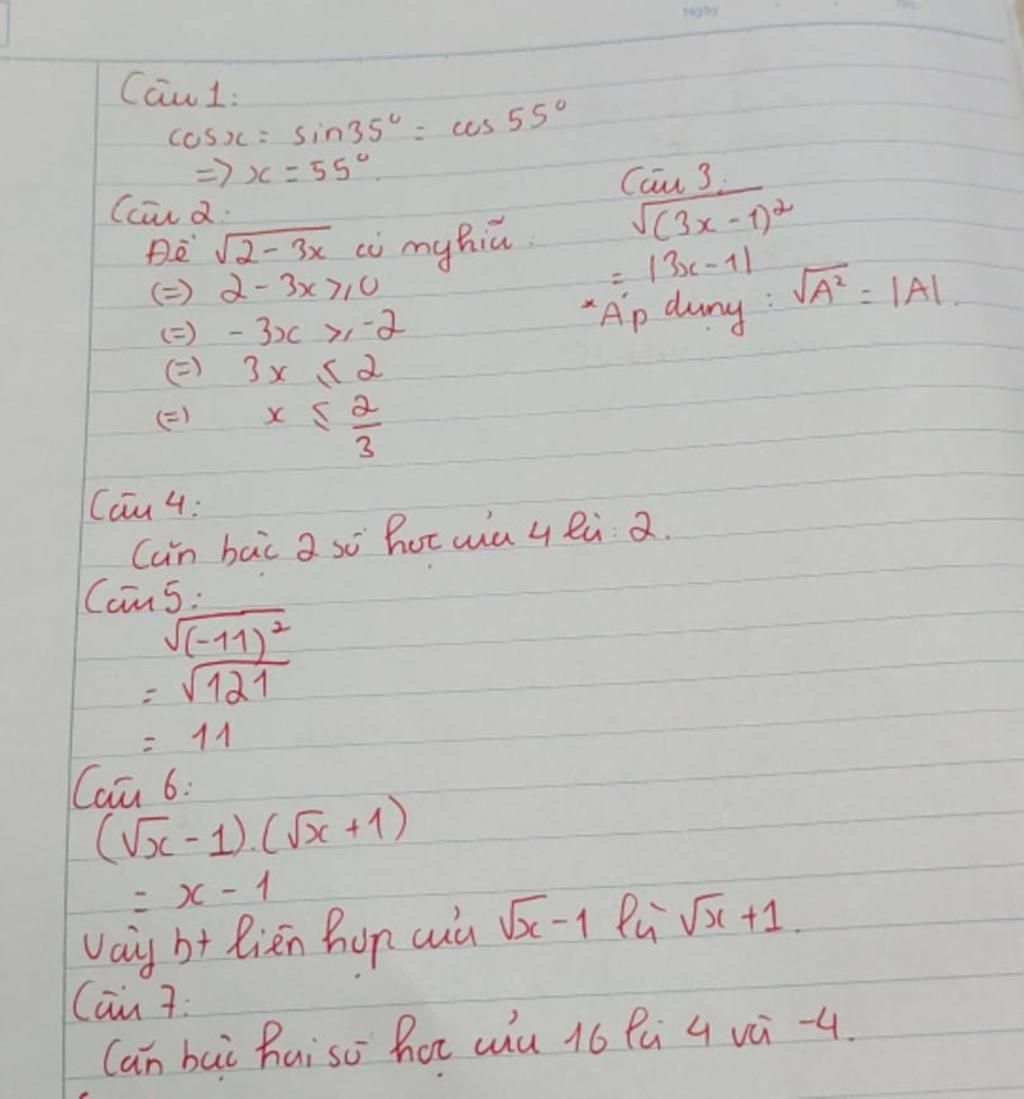 Ngày
No.
Câu 1:
cosx = sin35° = cos 55°
=> x = 55°.
Câu 2:
Để √(2 - 3x) có nghĩa :
(=) 2 - 3x ≥ 0
(=) - 3x ≥ -2
(=) 3x ≤ 2
(=) x ≤ 2/3
Câu 3:
√((3x - 1)²)
= |3x - 1|
*Áp dụng : √(A²) = |A|.
Câu 4:
Căn bậc 2 số học của 4 là: 2.
Câu 5:
√((-11)²)
= √121
= 11
Câu 6:
(√x - 1).(√x + 1)
= x - 1
Vậy bt liên hợp của √x - 1 là √x + 1.
Câu 7:
Căn bậc hai số học của 16 là 4 và -4.